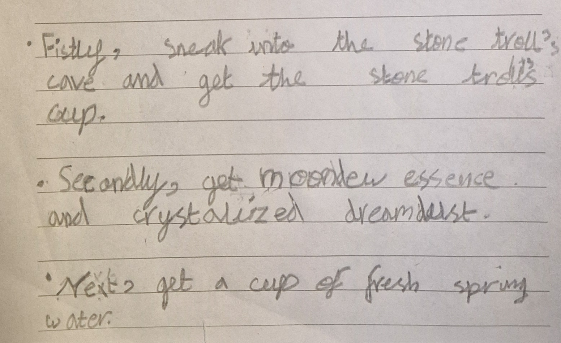 • Fistly, sneak into the stone troll's
cave and get the stone troll's
cup.
• Secondly, get moondew essence
and crystalized dreamdust.
• Next, get a cup of fresh spring
water.